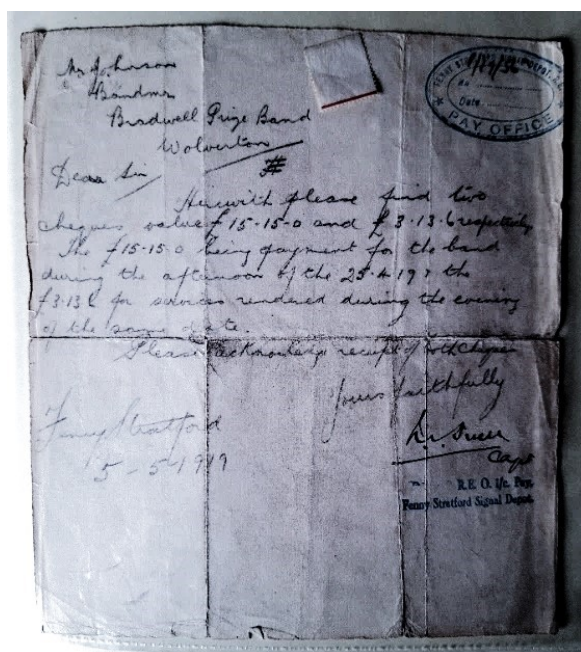 Mr Johnson
Bandmr
Bradwell Prize Band
Wolverton
PAY OFFICE
Date
Dear Sir
Herewith please find two
cheques value £15-15-0 and £3-13-6 respectively
The £15-15-0 being payment for the band
during the afternoon of the 25-4-19 & the
£3-13-6 for services rendered during the evening
of the same date.
Please acknowledge receipt of both cheques
Yours faithfully
Capt
R.E. O. i/c. Pay,
Fenny Stratford Signal Depot.
Fenny Stratford
5-5-1919